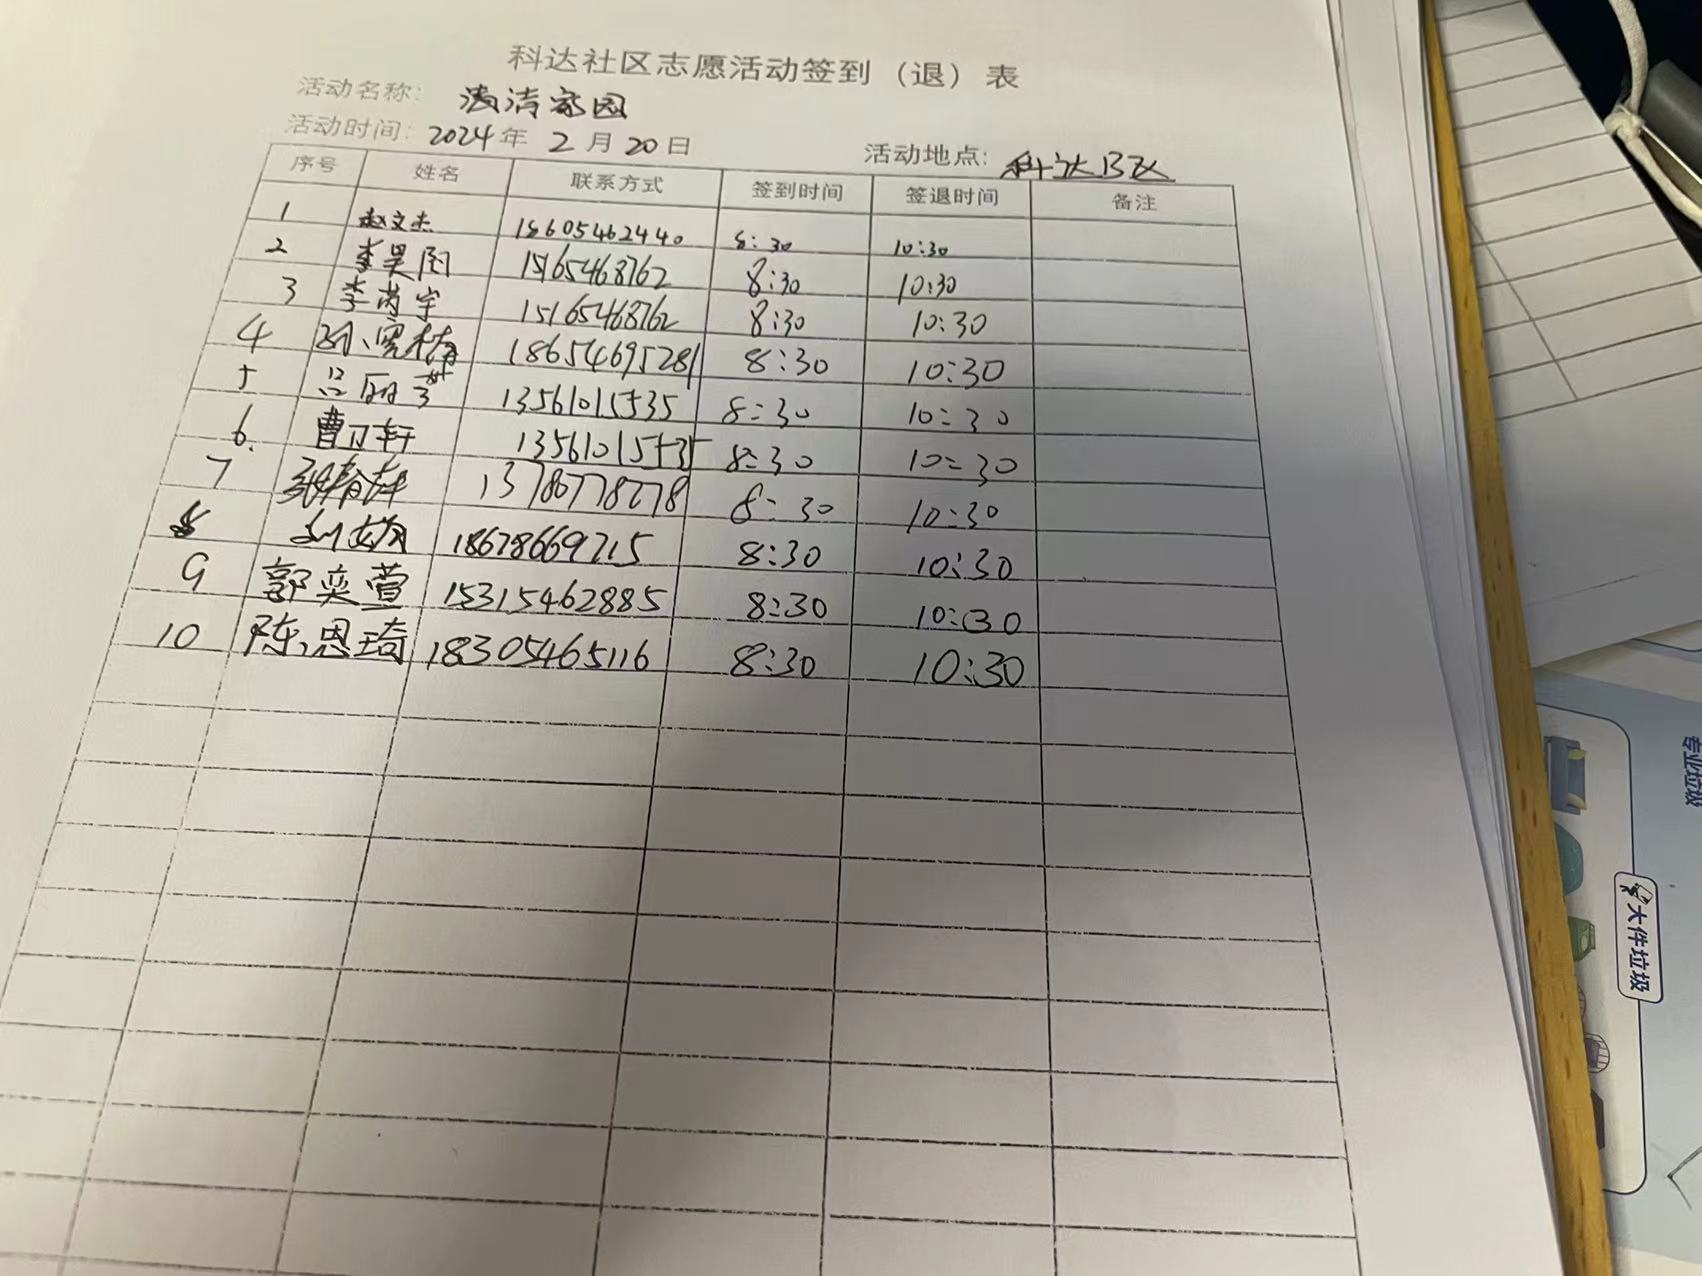 科达社区志愿活动签到（退）表
活动名称： 清清家园
活动时间：2024年 2月20日 活动地点：科达B区
序号 姓名 联系方式 签到时间 签退时间 备注
1 赵文杰 18605462440 8:30 10:30
2 李昊阅 15165468762 8:30 10:30
3 李芮宇 15165468762 8:30 10:30
4 18654695281 8:30 10:30
5 吕 13561015535 8:30 10:30
6. 曹卫轩 13561015535 8:30 10:30
7 13780778278 8:30 10:30
8 18678669715 8:30 10:30
9 郭奕萱 15315462885 8:30 10:30
10 陈恩琦 18305465116 8:30 10:30
专业垃圾
大件垃圾